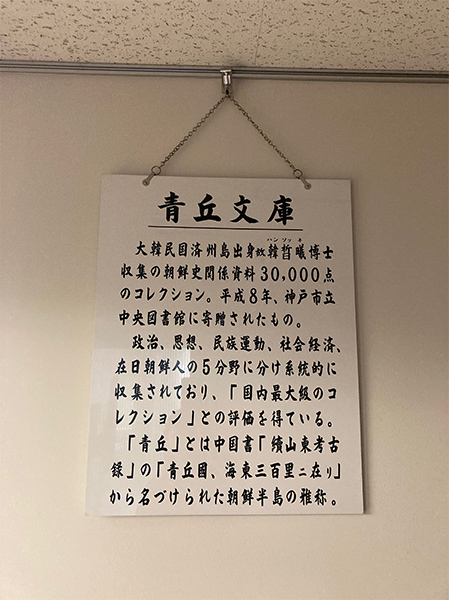 青丘文庫
大韓民国済州島出身故韓晢曦博士
ハン ソッ キ
収集の朝鮮史関係資料30,000点
のコレクション。平成8年、神戸市立
中央図書館に寄贈されたもの。
政治、思想、民族運動、社会経済、
在日朝鮮人の5分野に分け系統的に
収集されており、「国内最大級のコ
レクション」との評価を得ている。
「青丘」とは中国書「續山東考古
録」の「青丘国、海東三百里ニ在リ」
から名づけられた朝鮮半島の雅称。